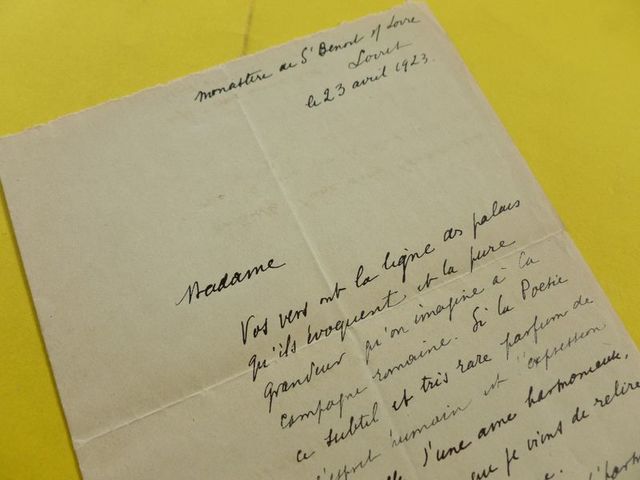 Monastère de St Benoit s/ Loire
Loiret
le 23 avril 1923.
Madame
Vos vers ont la ligne des palais
qu'ils évoquent et la pure
grandeur qu'on imagine à la
campagne romaine. Si la Poésie
ce subtil et très rare parfum de
l'esprit humain et l'expression
d'une ame harmonieuse,
que je viens de relire